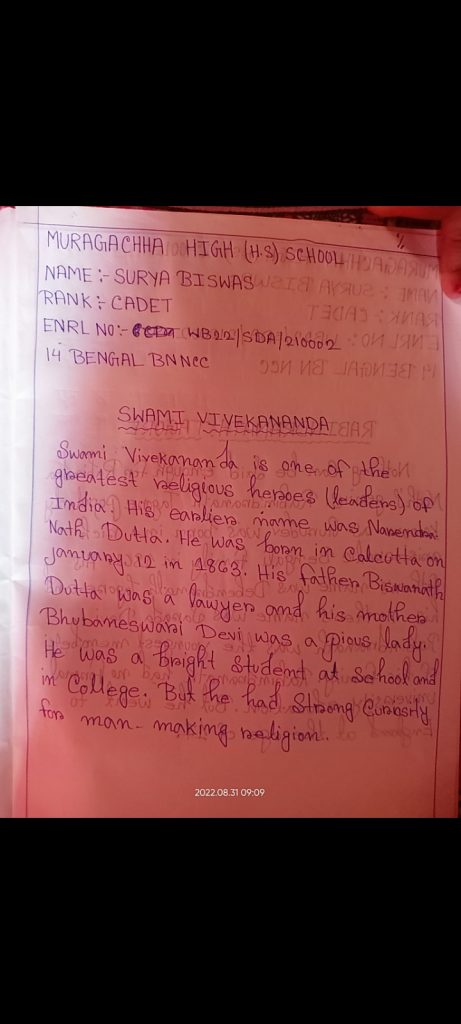 MURAGACHHA HIGH (H.S) SCHOOL
NAME :- SURYA BISWAS
RANK :- CADET
ENRL NO:- WB22/SDA/210002
14 BENGAL BN NCC
SWAMI VIVEKANANDA
Swami Vivekananda is one of the
greatest religious heroes (leaders) of
India. His earlier name was Narendra
Nath Dutta. He was born in Calcutta on
january 12 in 1863. His father Biswanath
Dutta was a lawyer and his mother
Bhubameswari Devi was a pious lady.
He was a bright student at school and
in College. But he had strong Curosity
for man-making religion.
2022.08.31 09:09